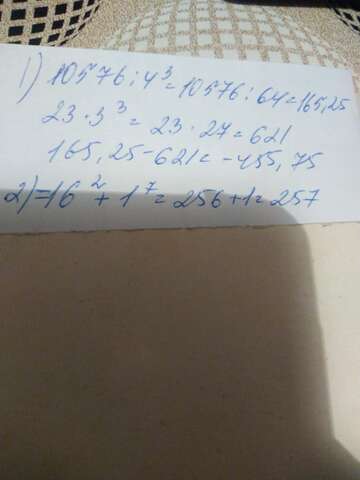 1) 10576:4³=10576:64=165,25
23·3³=23·27=621
165,25-621=-455,75
2)=16²+1⁷=256+1=257